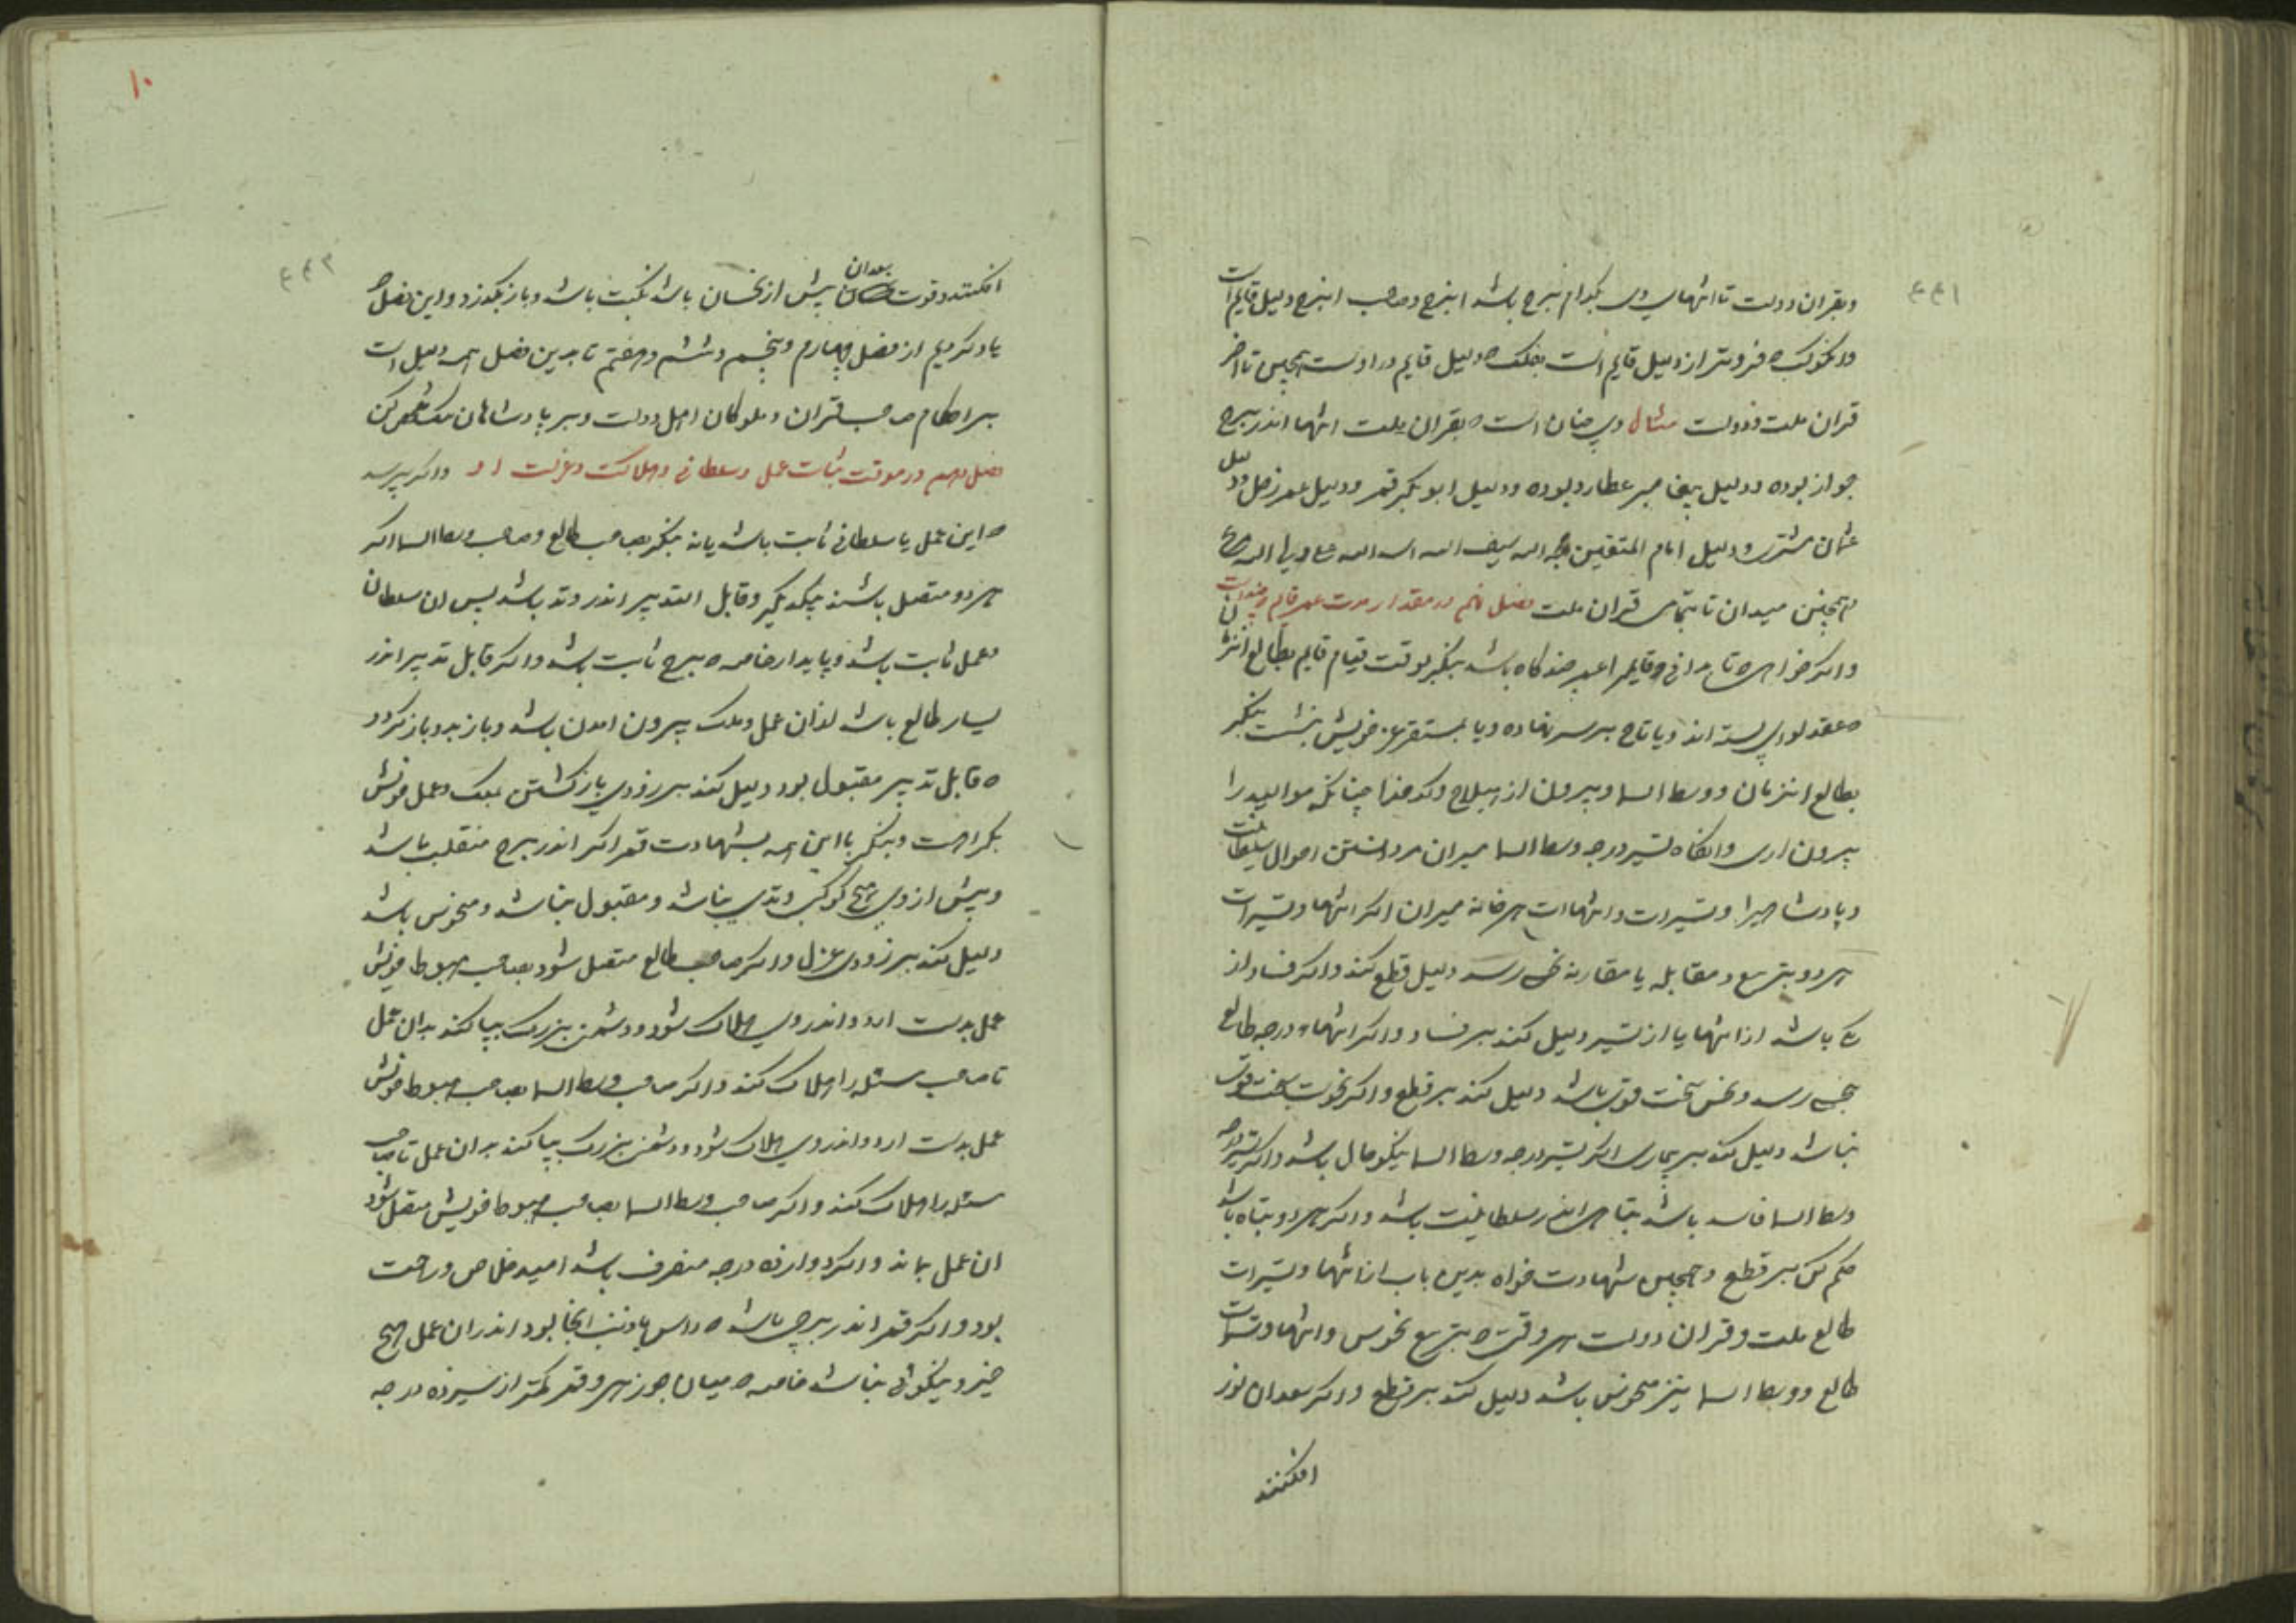 ۴۴۱
وبقران دولت تا انتهای وی بکدام برج باشد انبرج وصاحب انبرج دلیل قایم است
وانکوکب که فروتر از دلیل قایم است بفلک دلیل قایم دراوست همچنین تا اخر
قران ملت ودولت مثال وی چنان است که بقران ملت انتها اندر برج
جوزا بوده ودلیل پیغامبر عطارد بوده ودلیل ابوبکر قمر ودلیل عمر زحل ودلیل
عثمان مشتری ودلیل امام المتقین وجه الله سیف الله اسد الله
همچنین میدان تا بتمامی قران ملت فصل نهم در مقدار مدت عمر قایم چند است
واکر خواهی تا بدانی که قایم را عمر چند کاه باشد بنکر بوقت قیام قایم بطالع انزمان
که عقد لوای بسته اند ویا تاج بر سر نهاده ویا بمستقر عز خویش بنشست بنکر
بطالع انزمان ووسط السما وبیرون از هیلاج وکدخدا چنانکه موالید را
بیرون اری وانکاه تسیر درجه وسط السما میران مر دانستن احوال سلطنت
وپادشاهیرا وتسیرات وانتهاات هر خانه میران اکر انتها وتسیرات
هردو بتربیع ومقابله یا مقارنه نحس رسد دلیل قطع کند واکر فساد از
یکی باشد از انتها یا از تسیر دلیل کند بر فساد واکر انتهاء درجه طالع
بنحس رسد ونحس سخت قوی باشد دلیل کند بر قطع واکر نحوست سخت قوی
نباشد دلیل کند بر بیماری اکر تسیر درجه وسط السما نیکو حال باشد واکر تسیر درجه
وسط السما فاسد باشد تباهی اندر سلطانیت باشد واکر هردو تباه باشد
حکم کن بر قطع وهمچنین شهادت خواه بدین باب از انتها وتسیرات
طالع ملت وقران دولت هر وقتی که بتربیع نحوس وانتها وتسیرات
طالع ووسط السما نیز منحوس باشد دلیل کند بر قطع واکر سعدان نور
افکنند
۱۰
۴۴۲
افکنند وقوت سعدان بیش از نحسان باشد نکبت باشد وباز بکذرد واین فصل که
یاد کردیم از فصل چهارم وپنجم وششم وهفتم تا بدین فصل همه دلیل است
بر احکام صاحب قران وملوکان اهل دولت وبر پادشاهان
فصل دهم در موقت ثبات عمل وسلطانی وهلاکت وعزلت او واکر پرسد
که این عمل یا سلطانی ثابت باشد یا نه بنکر بصاحب طالع وصاحب وسط السما اکر
هردو متصل باشند بیکدیکر وقابل التدبیر اندر وتد باشد پس ان سلطان
وعمل ثابت باشد وپایدار خاصه که برج ثابت باشد واکر قابل تدبیر اندر
یسار طالع باشد از ان عمل وملک بیرون امدن باشد وباز بدو باز کردد
که قابل تدبیر مقبول بود دلیل کند بر زودی باز کشتن بملک وعمل خویش
بکراهت وبنکر با این همه بشهادت قمر اکر اندر برج منقلب باشد
وبیش از وی هیچ کوکب وتدی نباشد ومقبول نباشد ومنحوس باشد
دلیل کند بر زودی عزل واکر صاحب طالع متصل شود بصاحب هبوط خویش
عمل بدست ارد واندر وی هلاک شود ودشمن بزرک پیدا کند بدان عمل
تا صاحب مسئله را هلاک کند واکر صاحب وسط السما بصاحب هبوط خویش
عمل بدست ارد واندر وی هلاک شود ودشمن بزرک پیدا کند بدان عمل تا صاحب
مسئله را هلاک کند واکر صاحب وسط السما بصاحب هبوط خویش متصل شود
ان عمل بماند واکر دوازده درجه منصرف باشد امید خلاص وراحت
بود واکر قمر اندر برجی باشد که راس یا ذنب انجا بود اندران عمل هیچ
خیر ونیکوئی نباشد خاصه که میان جوزهر وقمر کمتر از سیزده درجه